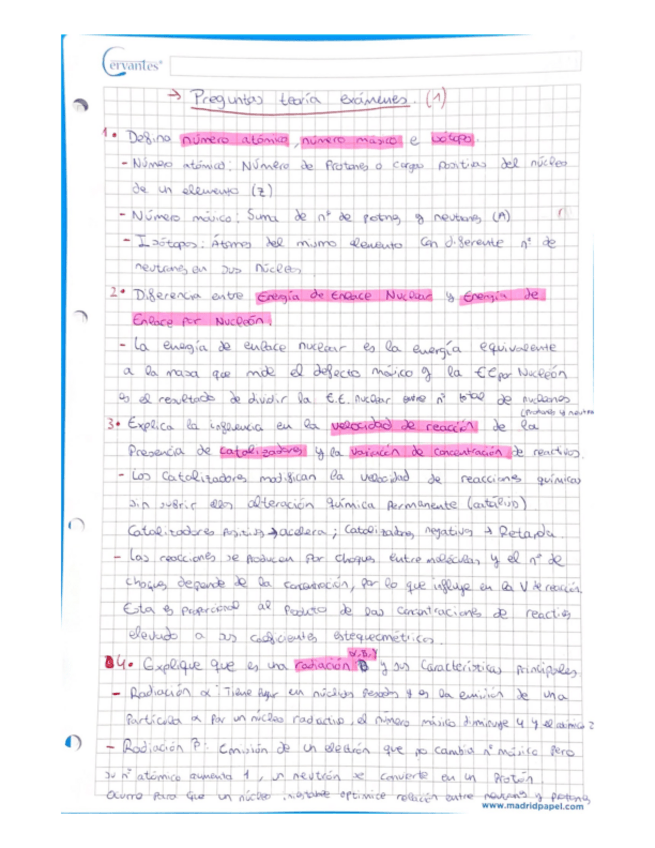 Cervantes®
→ Preguntas teoría exámenes. (1)
1. Defina número atómico, número másico e isótopo.
- Número atómico: Número de Protones o cargas positivas del núcleo
de un elemento (z)
- Número másico: Suma de nº de protones y neutrones (A)
- Isótopos: Átomos del mismo elemento con diferente nº de
neutrones en sus núcleos
2. Diferencia entre Energía de Enlace Nuclear y Energía de
Enlace por Nucleón.
- La energía de enlace nuclear es la energía equivalente
a la masa que mide el defecto másico y la EE por Nucleón
es el resultado de dividir la E.E. nuclear entre nº total de nucleones
(protones y neutro
3. Explica la influencia en la velocidad de reacción de la
Presencia de catalizadores y la variación de concentración de reactivos.
- Los catalizadores modifican la velocidad de reacciones químicas
sin sufrir ellos alteración química permanente (catálisis)
Catalizadores positivos → acelera; Catalizadores negativos → Retarda.
- Las reacciones se producen por choques entre moléculas y el nº de
choques depende de la concentración, por lo que influye en la V de reacción.
Esta es proporcional al producto de las concentraciones de reactivos
elevado a sus coeficientes estequeométricos.
α, β, γ
4. Explique que es una radiación β y sus características principales
- Radiación α: Tiene lugar en núclidos pesados y es la emisión de una
Partícula α por un núcleo radactivo, el número másico diminuye 4 y el atómico 2
- Radiación β: Emisión de un electrón que no cambia nº másico pero
su nº atómico aumenta 1, un neutrón se convierte en un Protón.
Ocurre para que un núcleo inestable optimice relación entre neutrones y protones
www.madridpapel.com